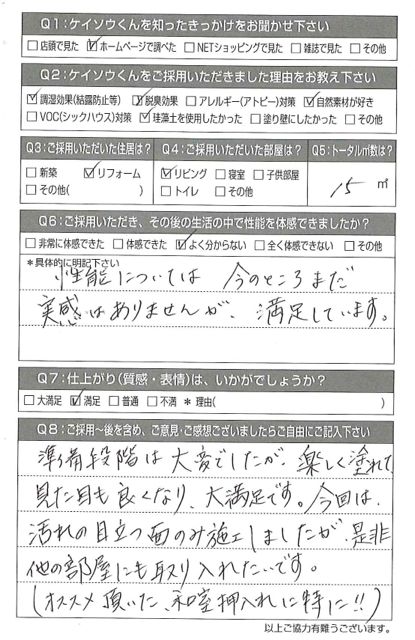 Q1：ケイソウくんを知ったきっかけをお聞かせ下さい
□店頭で見た ☑ホームページで調べた □NETショッピングで見た □雑誌で見た □その他
Q2：ケイソウくんをご採用いただきました理由をお教え下さい
☑調湿効果(結露防止等) ☑脱臭効果 □アレルギー(アトピー)対策 ☑自然素材が好き
□VOC(シックハウス)対策 ☑珪藻土を使用したかった □塗り壁にしたかった □その他
Q3：ご採用いただいた住居は？ Q4：ご採用いただいた部屋は？ Q5：トータル㎡数は？
□新築 ☑リフォーム ☑リビング □寝室 □子供部屋 15 ㎡
□その他( ) □トイレ □その他
Q6：ご採用いただき、その後の生活の中で性能を体感できましたか？
□非常に体感できた □体感できた ☑よく分からない □全く体感できない □その他
＊具体的に明記下さい
性能については 今のところまだ
実感はありませんが、満足しています。
Q7：仕上がり(質感・表情)は、いかがでしょうか？
□大満足 ☑満足 □普通 □不満 ＊理由( )
Q8：ご採用～後を含め、ご意見・ご感想ございましたらご自由にご記入下さい
準備段階は大変でしたが、楽しく塗れて
見た目も良くなり、大満足です。今回は、
汚れの目立つ面のみ施工しましたが、是非
他の部屋にも取り入れたいです。
(オススメ頂いた、和室押入れに特に!!)
以上ご協力有難うございます。